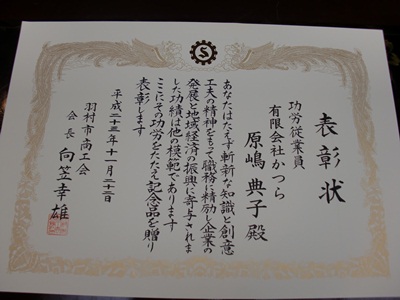 表彰状
功労従業員
有限会社かつら
原嶋典子殿
あなたはたえず斬新な知識と創意
工夫の精神をもって職務に精励し企業の
発展と地域経済の振興に寄与されま
した功績は他の模範であります
ここにその功労をたたえ記念品を贈り
表彰します
平成二十三年十一月二十二日
羽村市商工会
会長 向笠幸雄